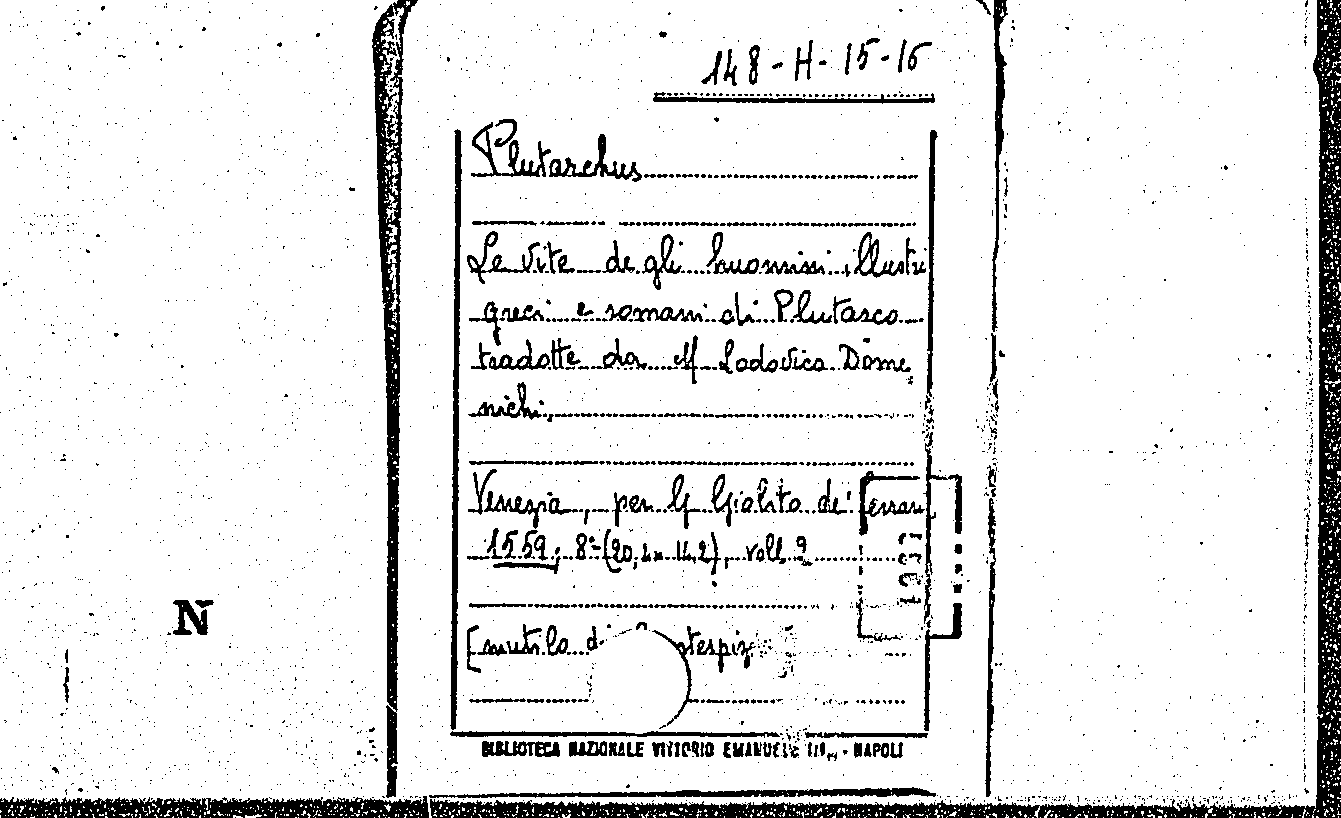 148-H-15-16
Plutarchus
Le vite degli huomini illustri
greci e romani di Plutarco
tradotte da M Lodovico Dome
nichi.
Venezia, per G Giolito de' Ferrari,
1559; 8°(20, x 14,2), voll. 2
N
[mutilo di
BIBLIOTECA NAZIONALE VITTORIO EMANUELE III - NAPOLI